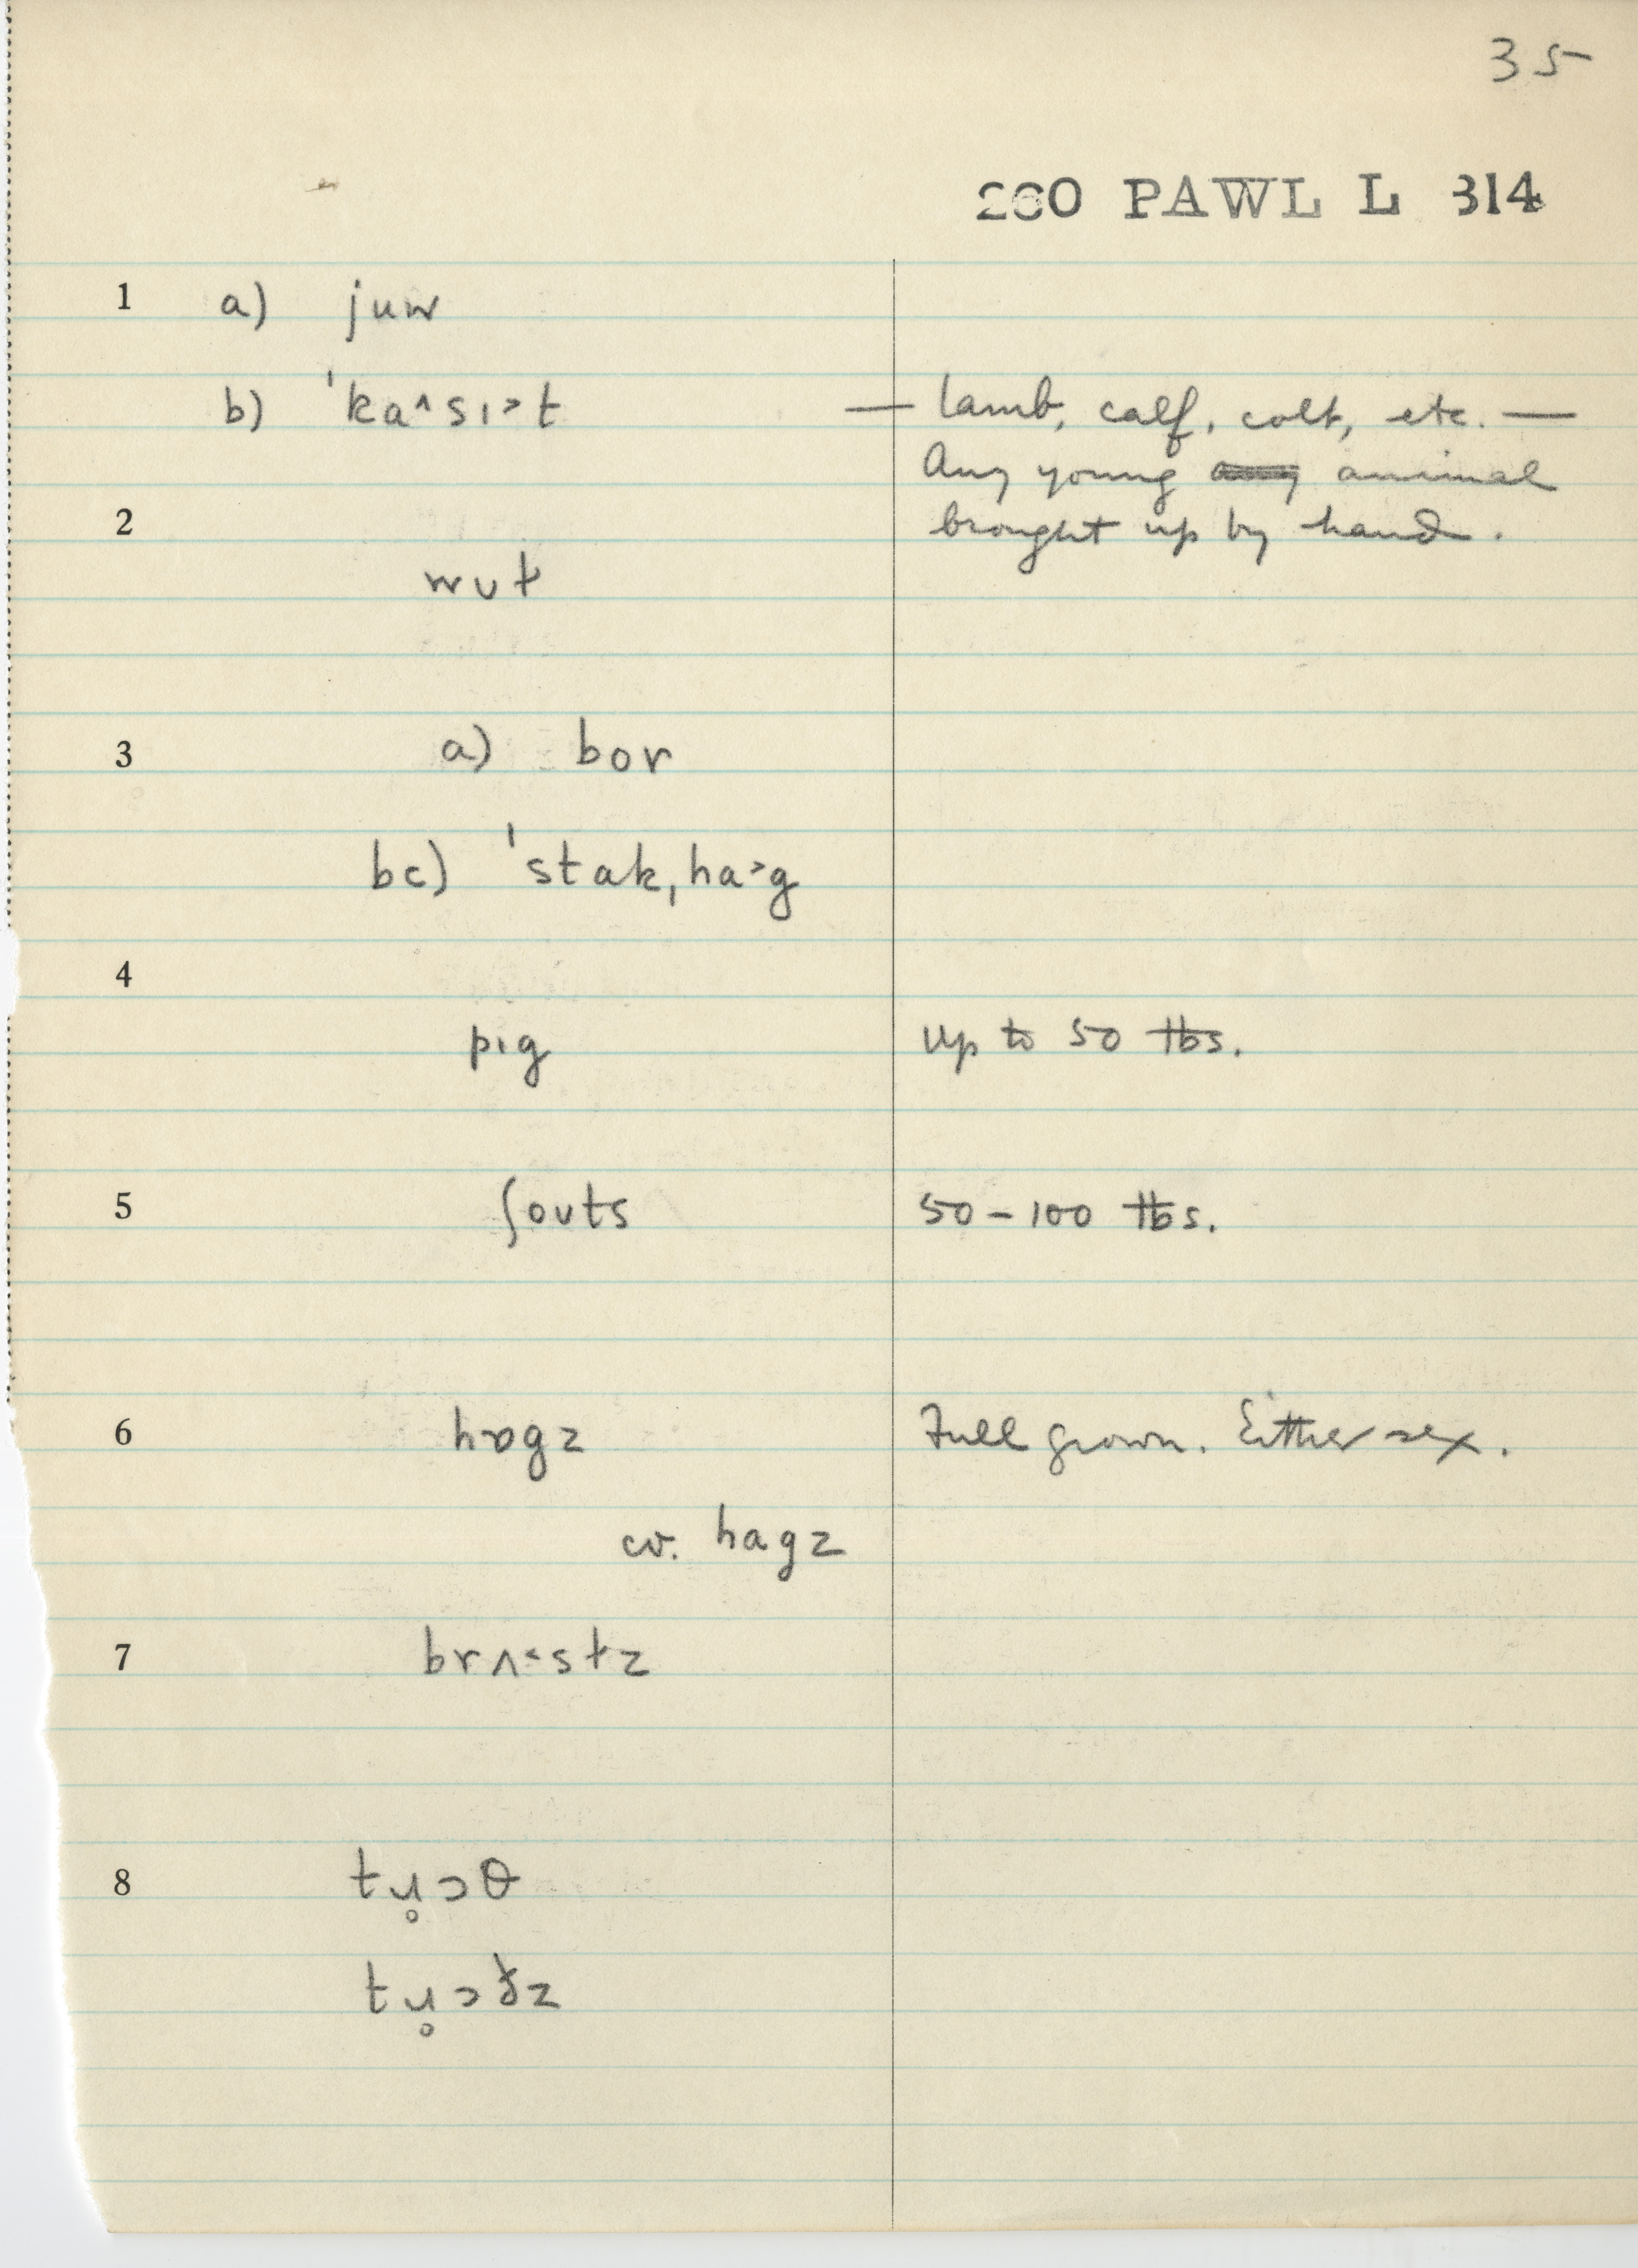 35
260 PAWL L 314
1 a) juw
b) ˈka^sı>t — lamb, calf, colt, etc. —
Any young animal
2 brought up by hand.
wʊt
3 a) bor
bc) ˈstak,ha>g
4
pɪg up to 50 lbs.
5 ʃoʊts 50-100 lbs.
6 hɒgz Full grown. Either sex.
cv. hagz
7 brʌ<stz
8 tu̥ɔθ